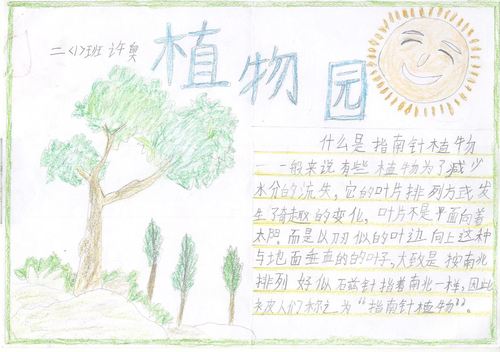 二〈1〉班 许奥
植物园
什么是指南针植物
一般来说有些植物为了减少
水分的流失，它的叶片排列方式发
生了有趣的变化，叶片不是平面向着
太阳而是以刀似的叶边向上这种
与地面垂直的的叶子，大致是按南北
排列好似石兹针指着南北一样，因此
被人们称之为“指南针植物”。